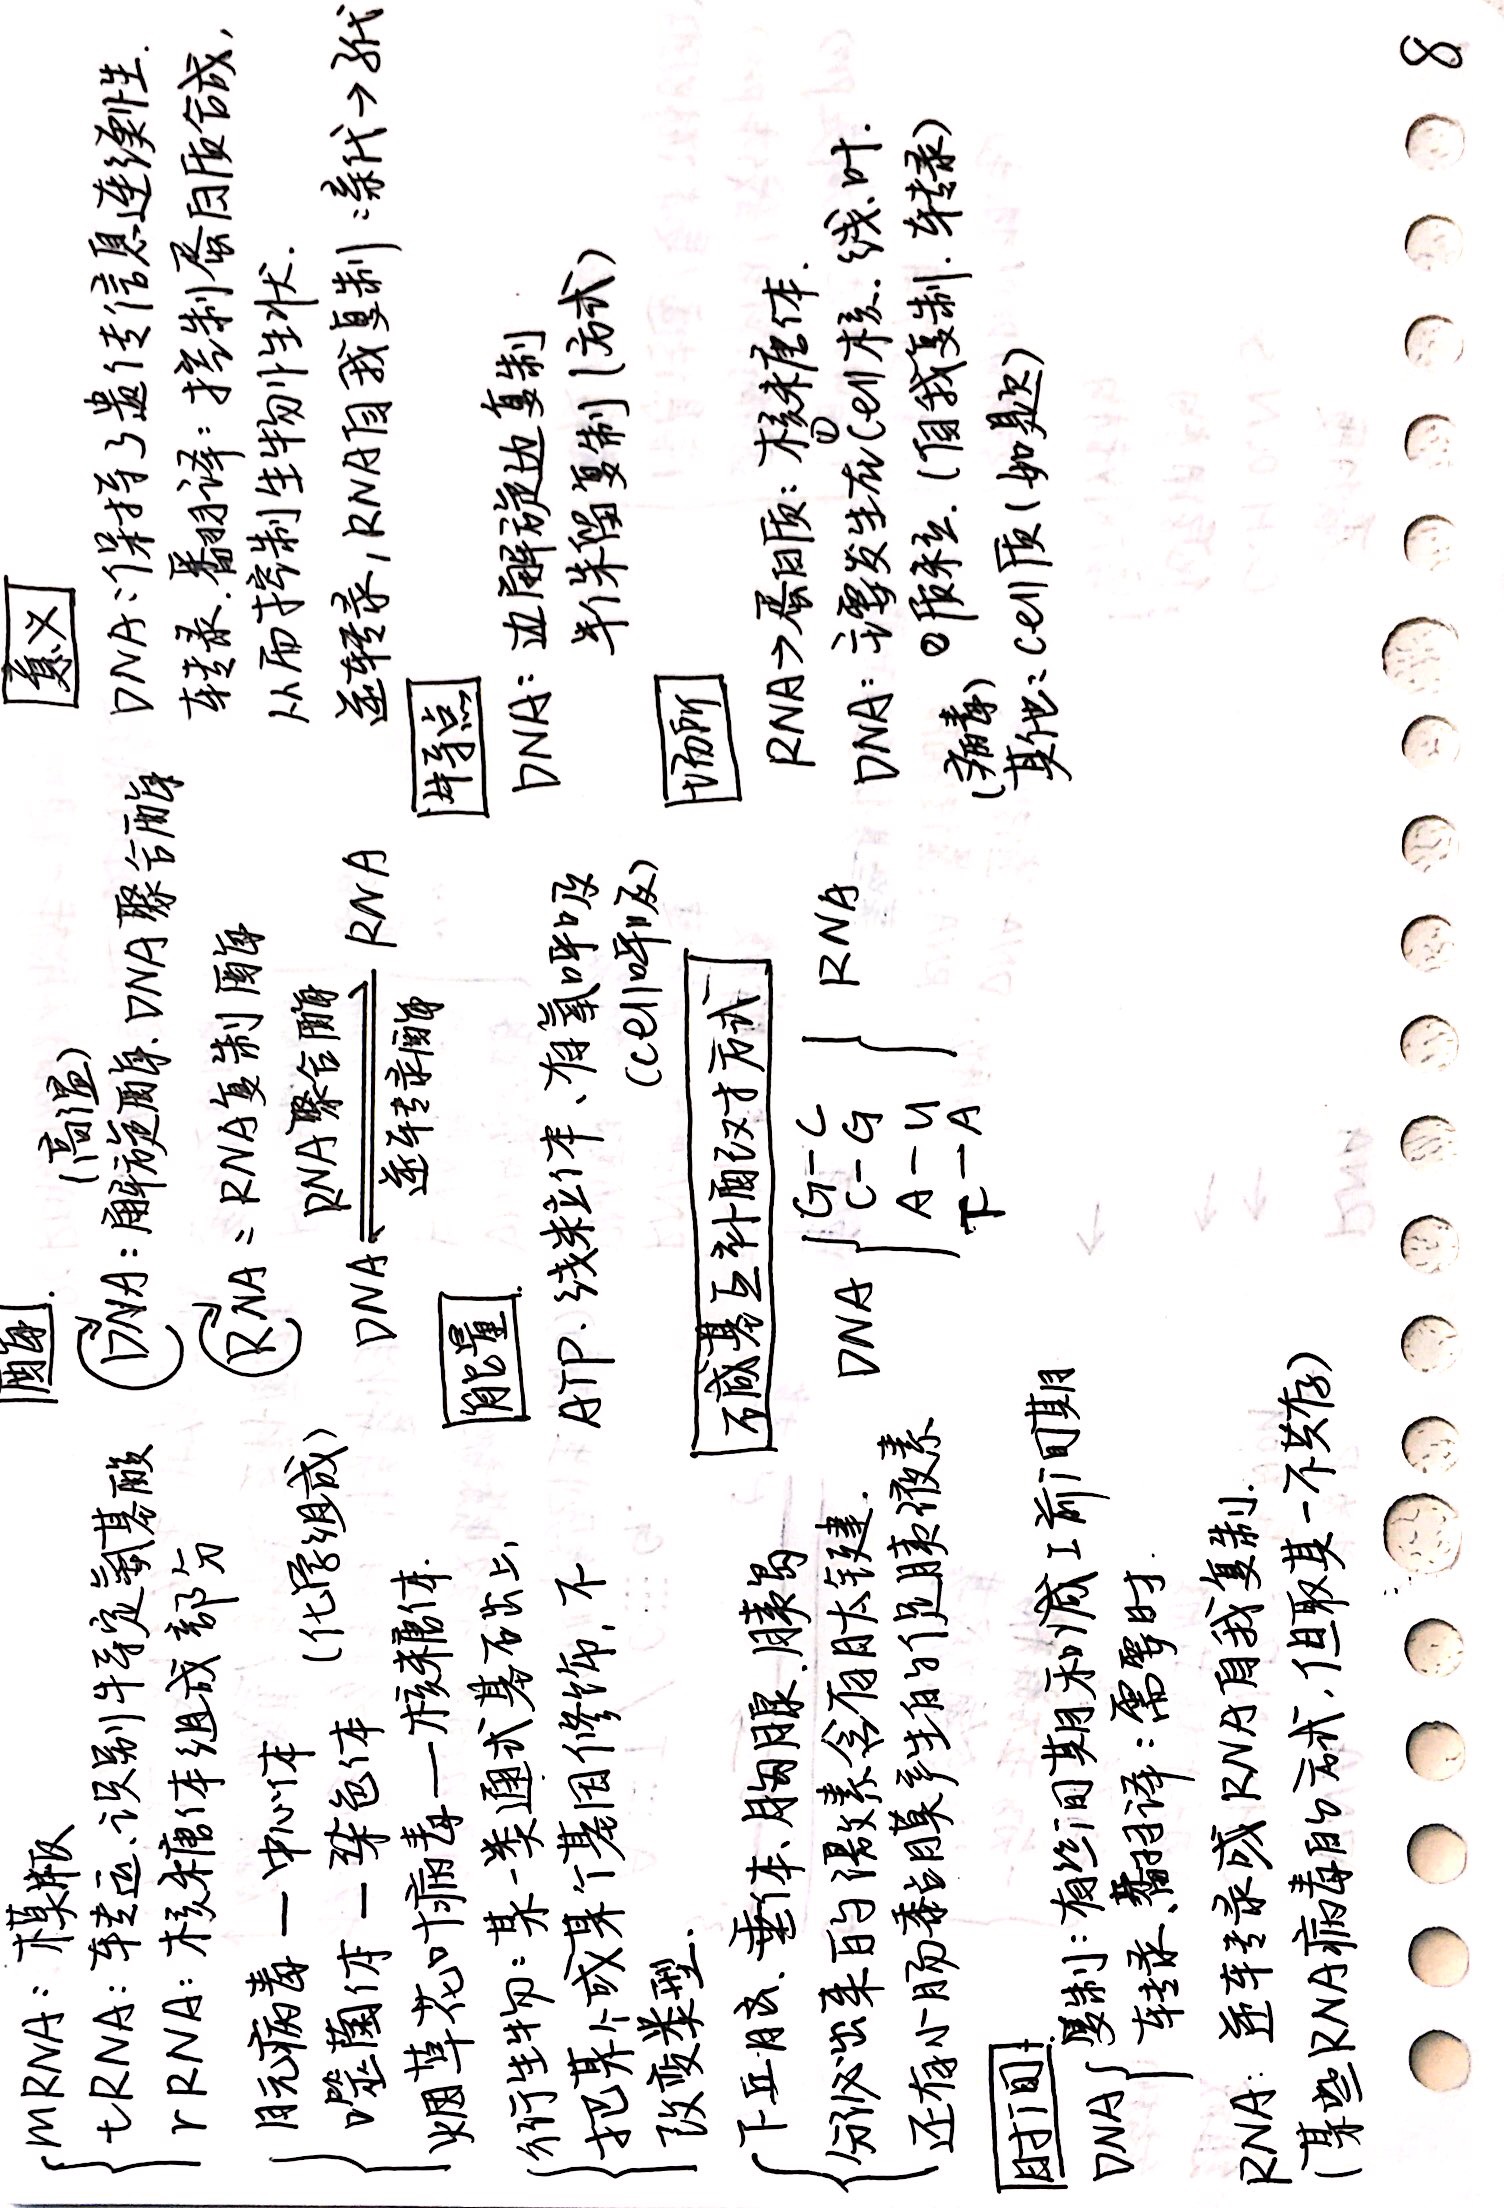 mRNA：模版
tRNA：转运、识别特定氨基酸
rRNA：核糖体组成部分
朊病毒 — 中心体
噬菌体 — 染色体 (化学组成)
烟草花叶病毒 — 核糖体.
衍生物：某一类通式基础上,
把某个或某个基因修饰,不
改变类型.
下丘脑、垂体、胸腺、胰岛
分泌出来的激素含有肽键.
还有小肠黏膜产生的促胰液素
时间
DNA 复制：有丝间期和减I前间期
转录、翻译：需要时.
RNA：逆转录或RNA自我复制.
(某些RNA病毒的方式,但取其一不共存)
酶
(高温)
DNA：解旋酶、DNA聚合酶
RNA：RNA复制酶
RNA聚合酶
DNA RNA
逆转录酶
能量
ATP. 线粒体、有氧呼吸
(cell呼吸)
碱基互补配对方式
DNA RNA
G-C
C-G
A-U
T-A
意义
DNA：保持了遗传信息连续性.
转录.翻译：控制蛋白质合成,
从而控制生物性状.
逆转录,RNA自我复制：亲代→子代
特点
DNA：边解旋边复制
半保留复制(方式)
场所
RNA→蛋白质：核糖体.
DNA：①主要发生在cell核.线.叶.
②质粒.(自我复制.转录)
(病毒)
其他：cell质(如题)
8